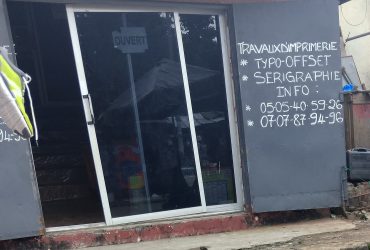 OUVERT
TRAVAUX D'IMPRIMERIE
* TYPO-OFFSET
* SERIGRAPHIE
INFO :
* 05-05-40-59-26
* 07-07-87-94-96